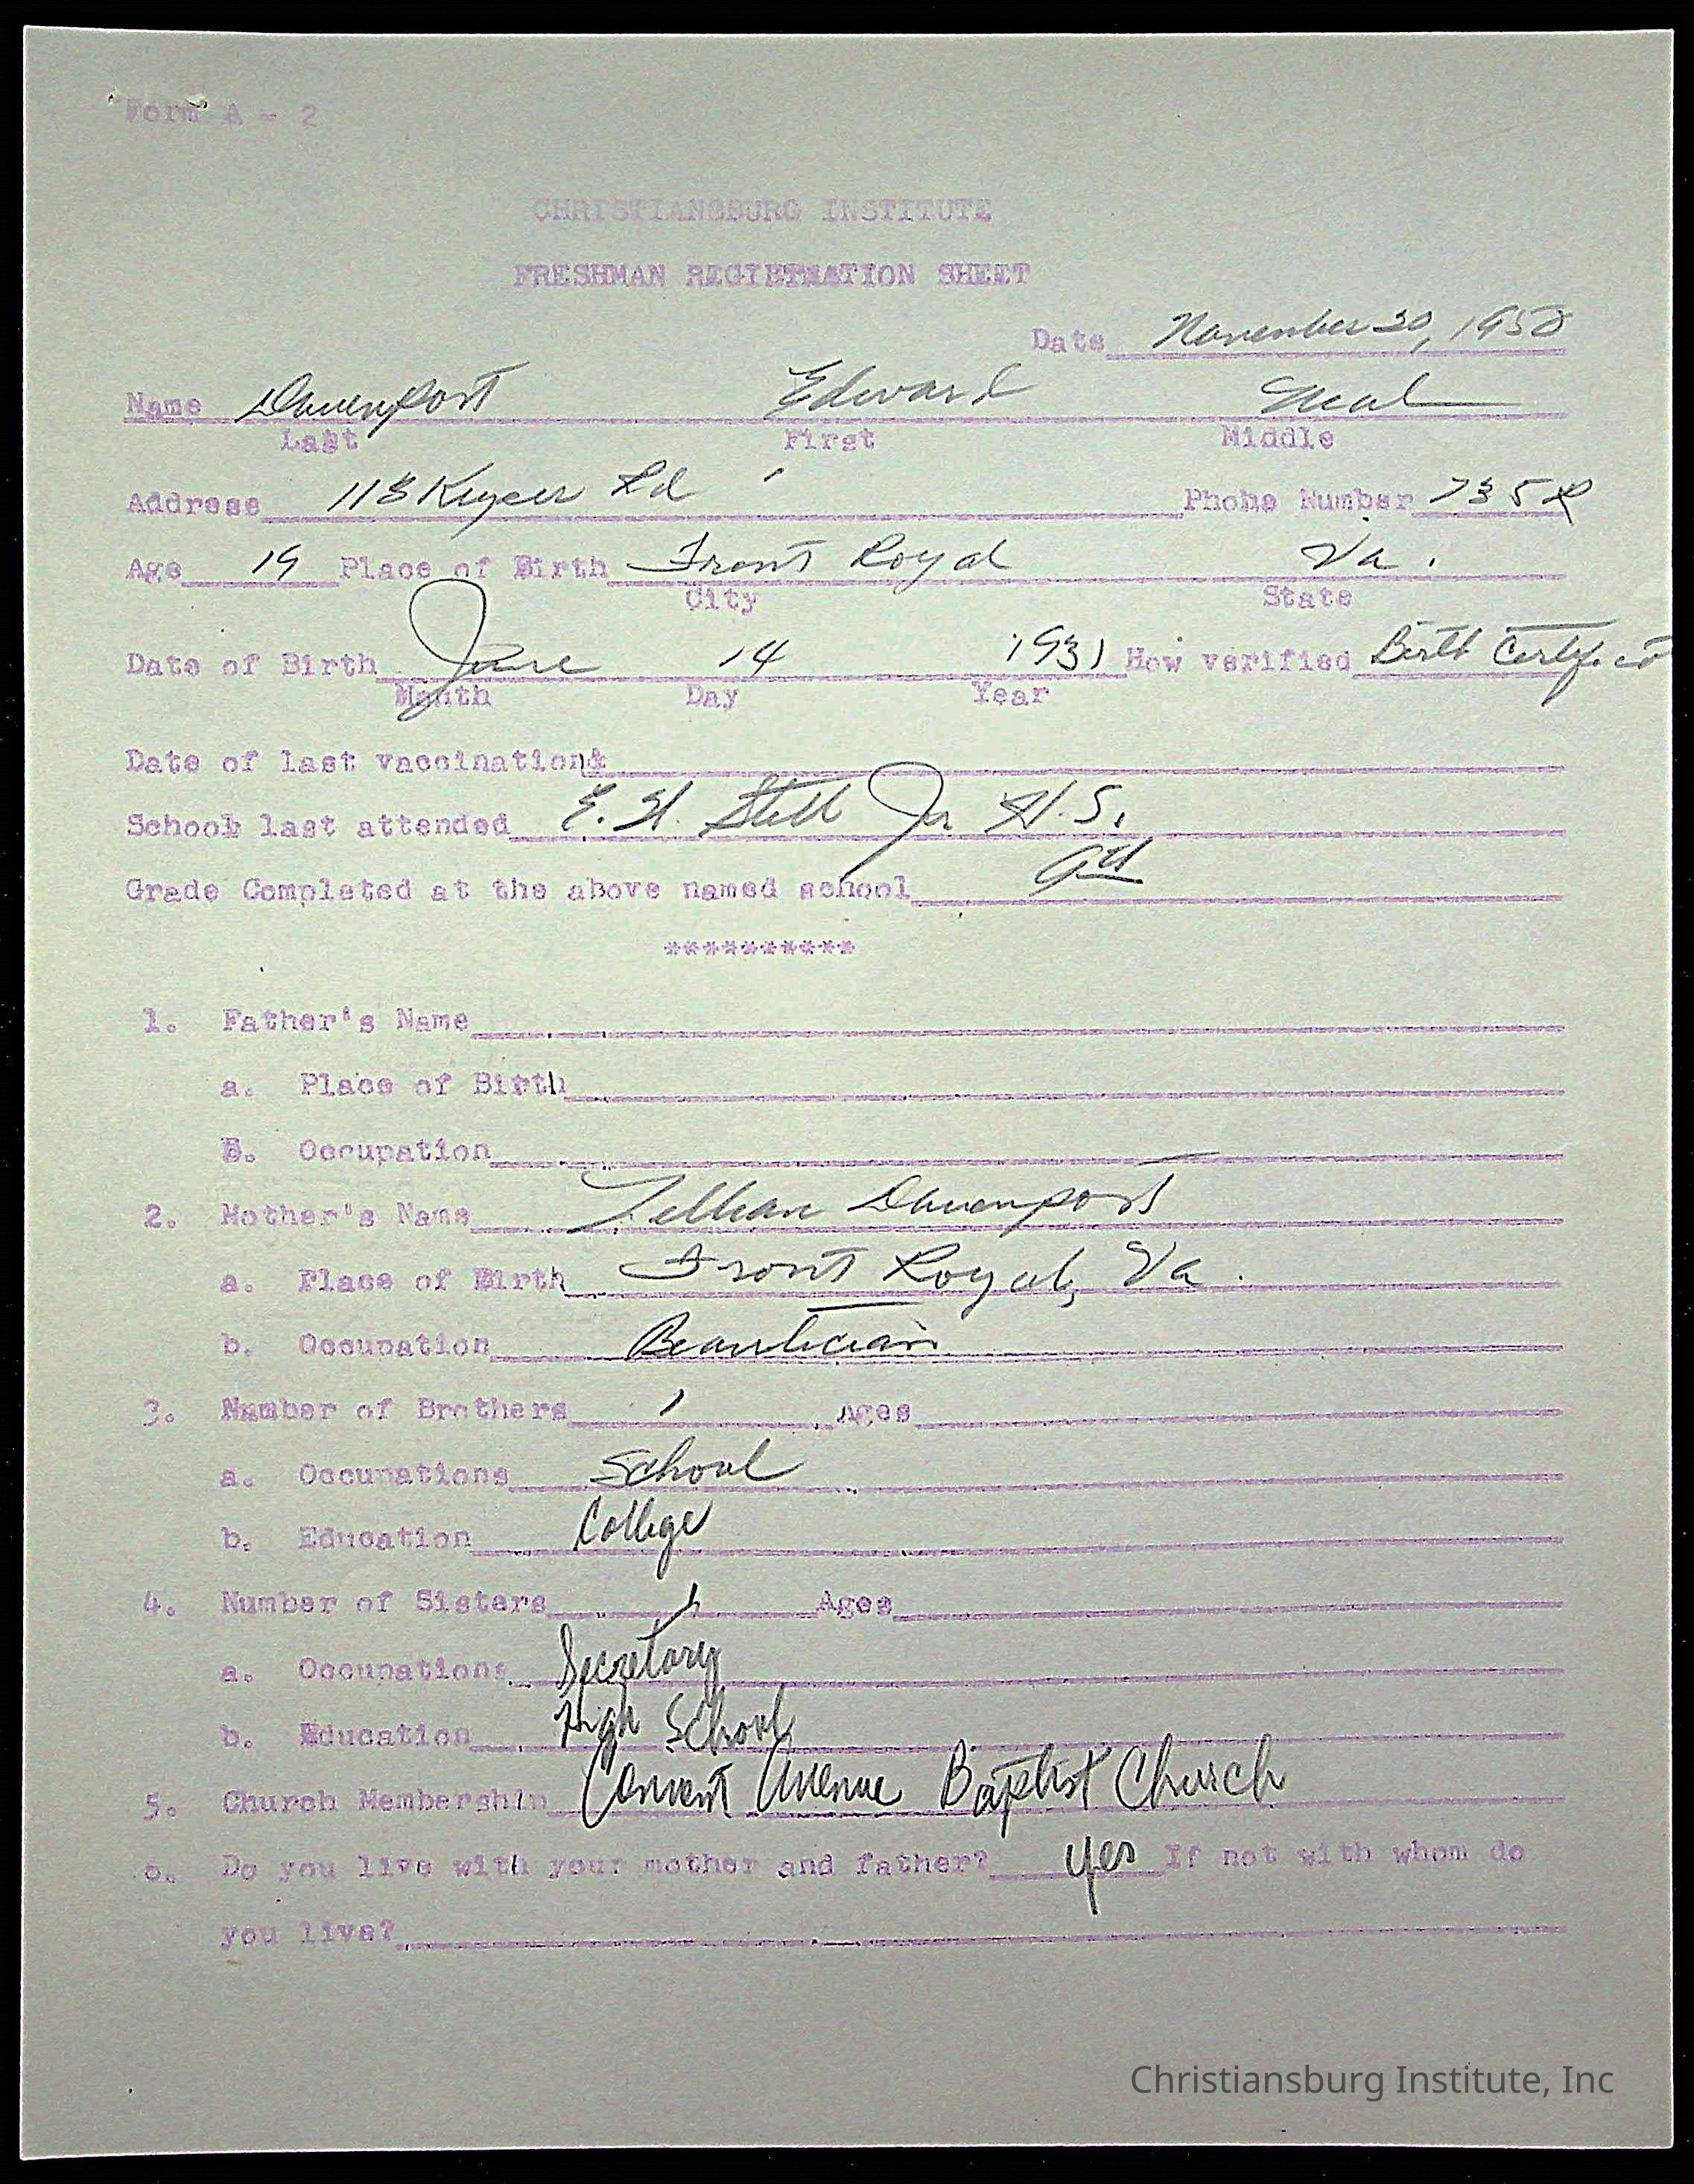 Form A - 2
CHRISTIANSBURG INSTITUTE
FRESHMAN REGISTRATION SHEET
Date November 30, 1950
Name Davenport Edward Neal
Last First Middle
Address 113 Rd Phone Number 735R
Age 19 Place of Birth Front Royal Va.
City State
Date of Birth June 14 1931 How verified Birth Certificat
Month Day Year
Date of last vaccination
School last attended E. H. Jr H.S.
Grade Completed at the above named school 9th
**********
1. Father's Name
a. Place of Birth
B. Occupation
2. Mother's Name Lillian Davenport
a. Place of Birth Front Royal, Va.
b. Occupation Beautician
3. Number of Brothers 1 Ages
a. Occupations School
b. Education College
4. Number of Sisters 1 Ages
a. Occupations Secretary
b. Education High School
5. Church Membership Convent Avenue Baptist Church
6. Do you live with your mother and father? yes If not with whom do
you live?
Christiansburg Institute, Inc